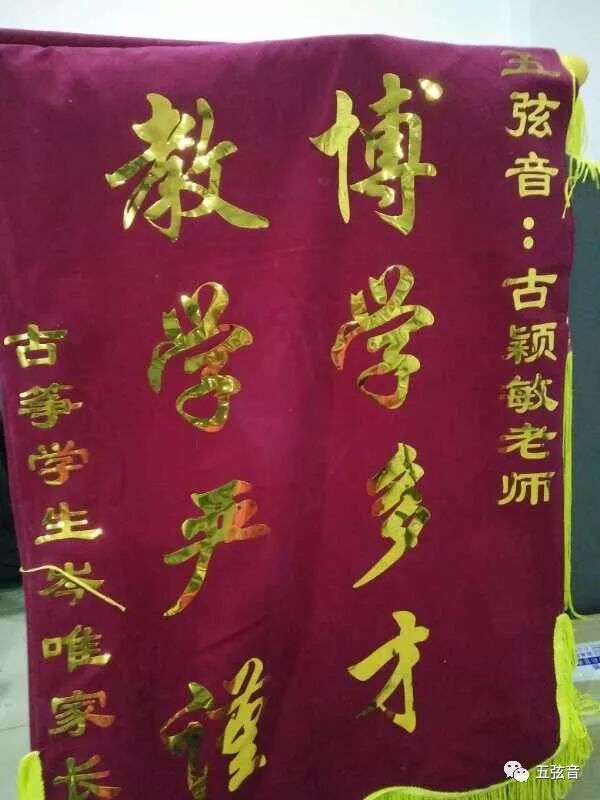 五弦音：古颖敏老师
博学多才
教学严谨
古筝学生岑唯家长
五弦音